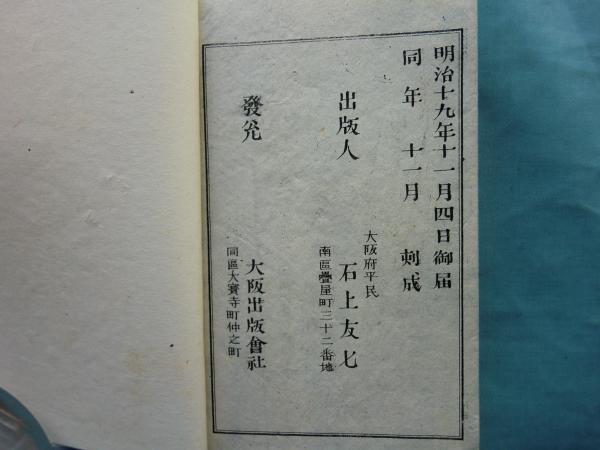 明治十九年十一月四日御届
同年 十一月 刺成
大阪府平民
出版人 石上友七
南區疊屋町三十二番地
發兌 大阪出版會社
同區大寳寺町仲之町